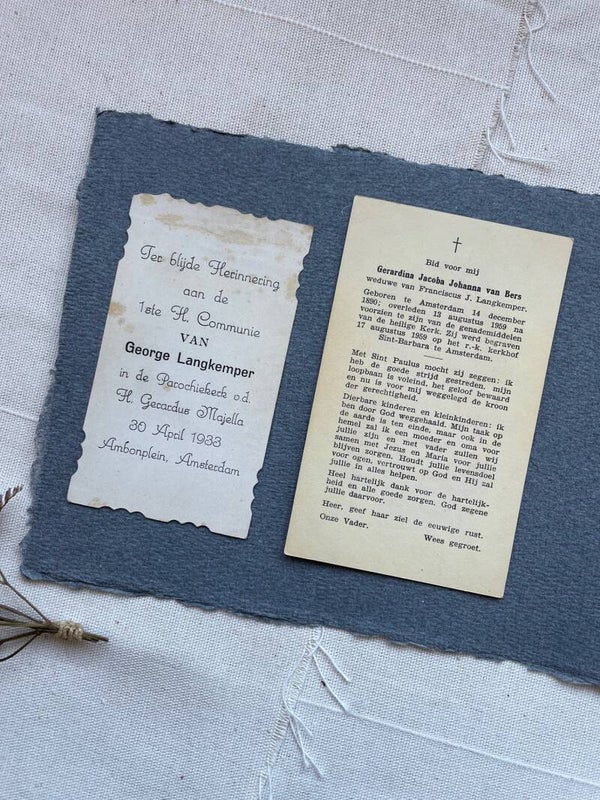 Ter blijde Herinnering
aan de
1ste H. Communie
VAN
George Langkemper
in de Parochiekerk o.d.
H. Gerardus Majella
30 April 1933
Ambonplein, Amsterdam
Bid voor mij
Gerardina Jacoba Johanna van Bers
weduwe van Franciscus J. Langkemper.
Geboren te Amsterdam 14 december
1890; overleden 13 augustus 1959 na
voorzien te zijn van de genademiddelen
van de heilige Kerk. Zij werd begraven
17 augustus 1959 op het r.-k. kerkhof
Sint-Barbara te Amsterdam.
Met Sint Paulus mocht zij zeggen: ik
heb de goede strijd gestreden, mijn
loopbaan is voleind, het geloof bewaard
en nu is voor mij weggelegd de kroon
der gerechtigheid.
Dierbare kinderen en kleinkinderen: ik
ben door God weggehaald. Mijn taak op
de aarde is ten einde, maar ook in de
hemel zal ik een moeder en oma voor
jullie zijn en met vader zullen wij
samen met Jezus en Maria voor jullie
blijven zorgen. Houdt jullie levensdoel
voor ogen, vertrouwt op God en Hij zal
jullie in alles helpen.
Heel hartelijk dank voor de hartelijk-
heid en alle goede zorgen. God zegene
jullie daarvoor.
Heer, geef haar ziel de eeuwige rust.
Onze Vader.
Wees gegroet.